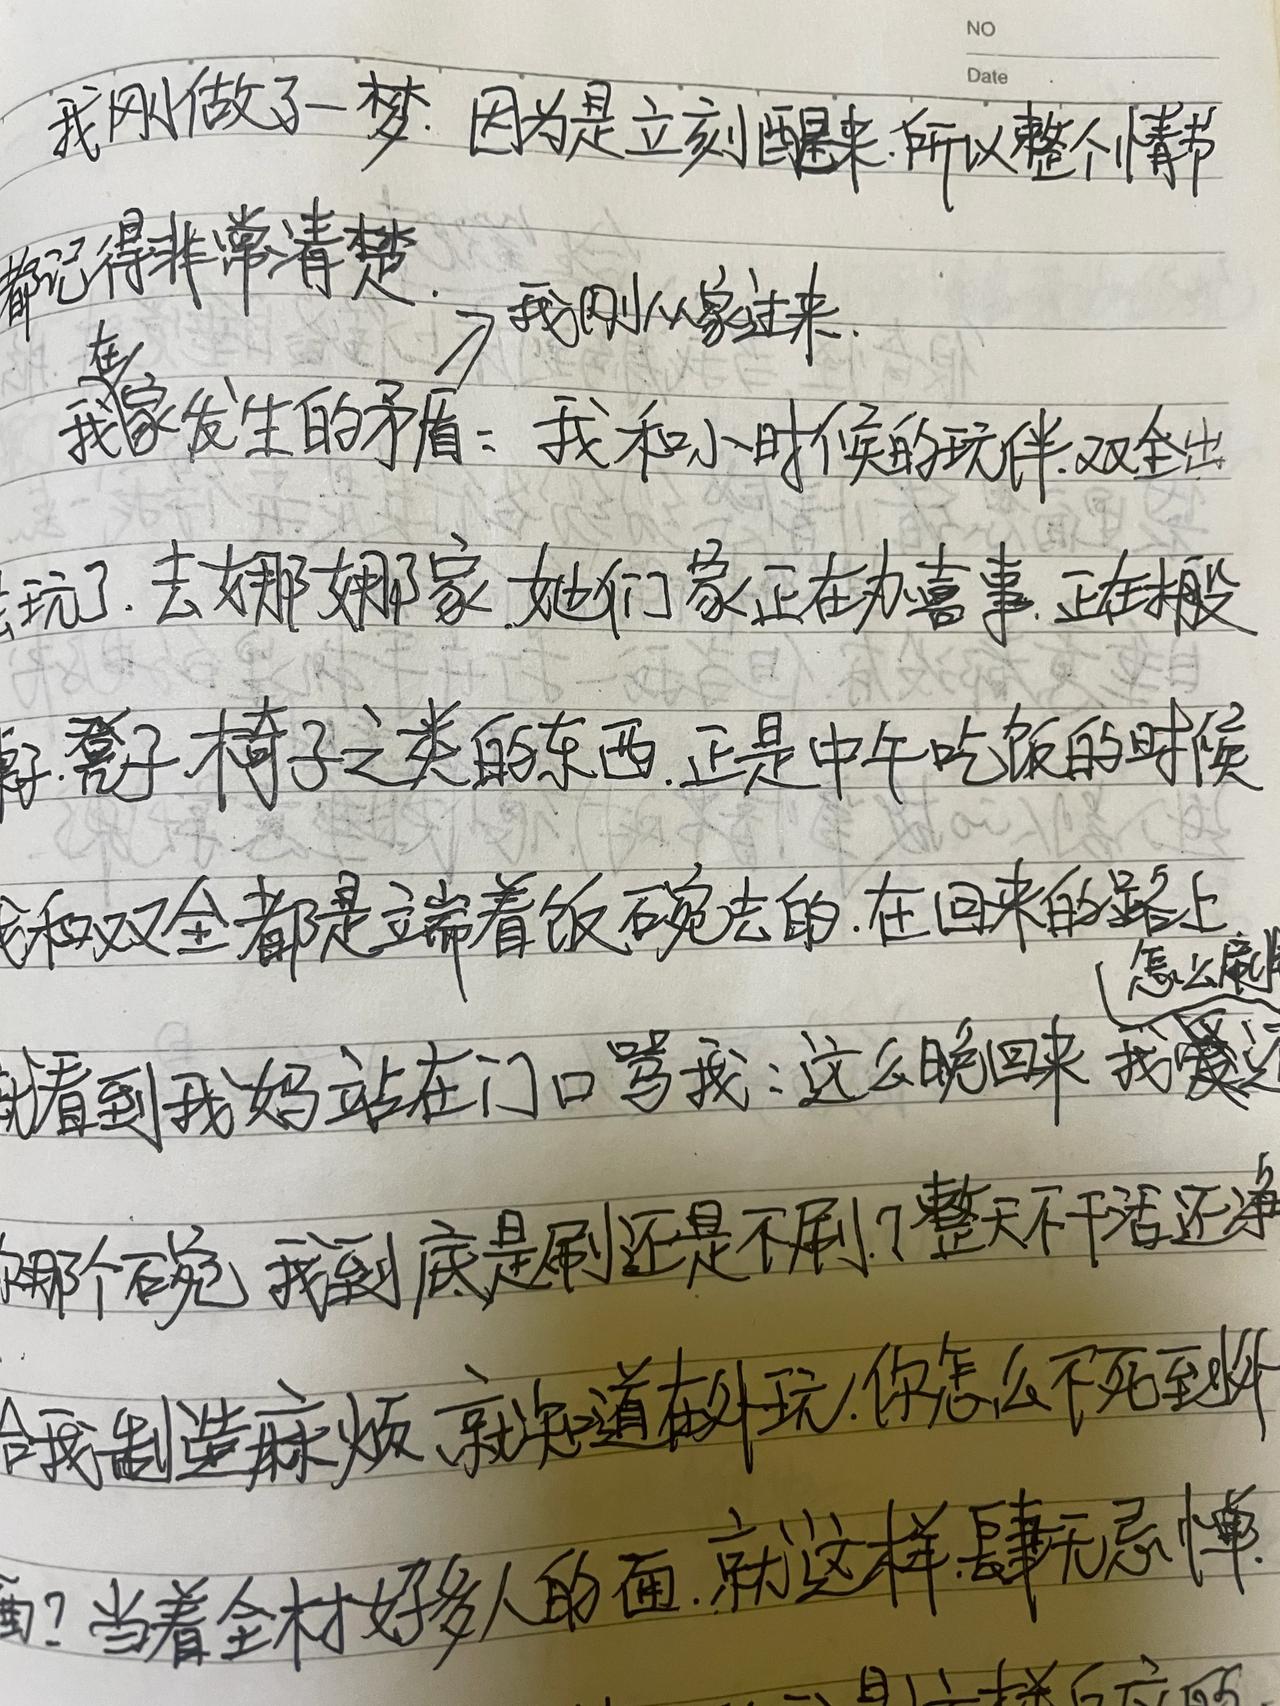 NO
Date
我刚做了一梦.因为是立刻醒来.所以整个情节
都记得非常清楚.
我刚从家过来.
在
我家发生的矛盾:我和小时候的玩伴.双全出
去玩了.去娜娜家.她们家正在办喜事.正在搬
凳子.椅子之类的东西.正是中午吃饭的时候
我和双全都是端着饭碗去的.在回来的路上.
怎么刷
就看到我妈站在门口骂我:这么晚回来 我
你那个碗 我到底是刷还是不刷?整天不干活还净
给我制造麻烦.就知道在外玩.你怎么不死到外
面?当着全村好多人的面.就这样.肆无忌惮.
是这样